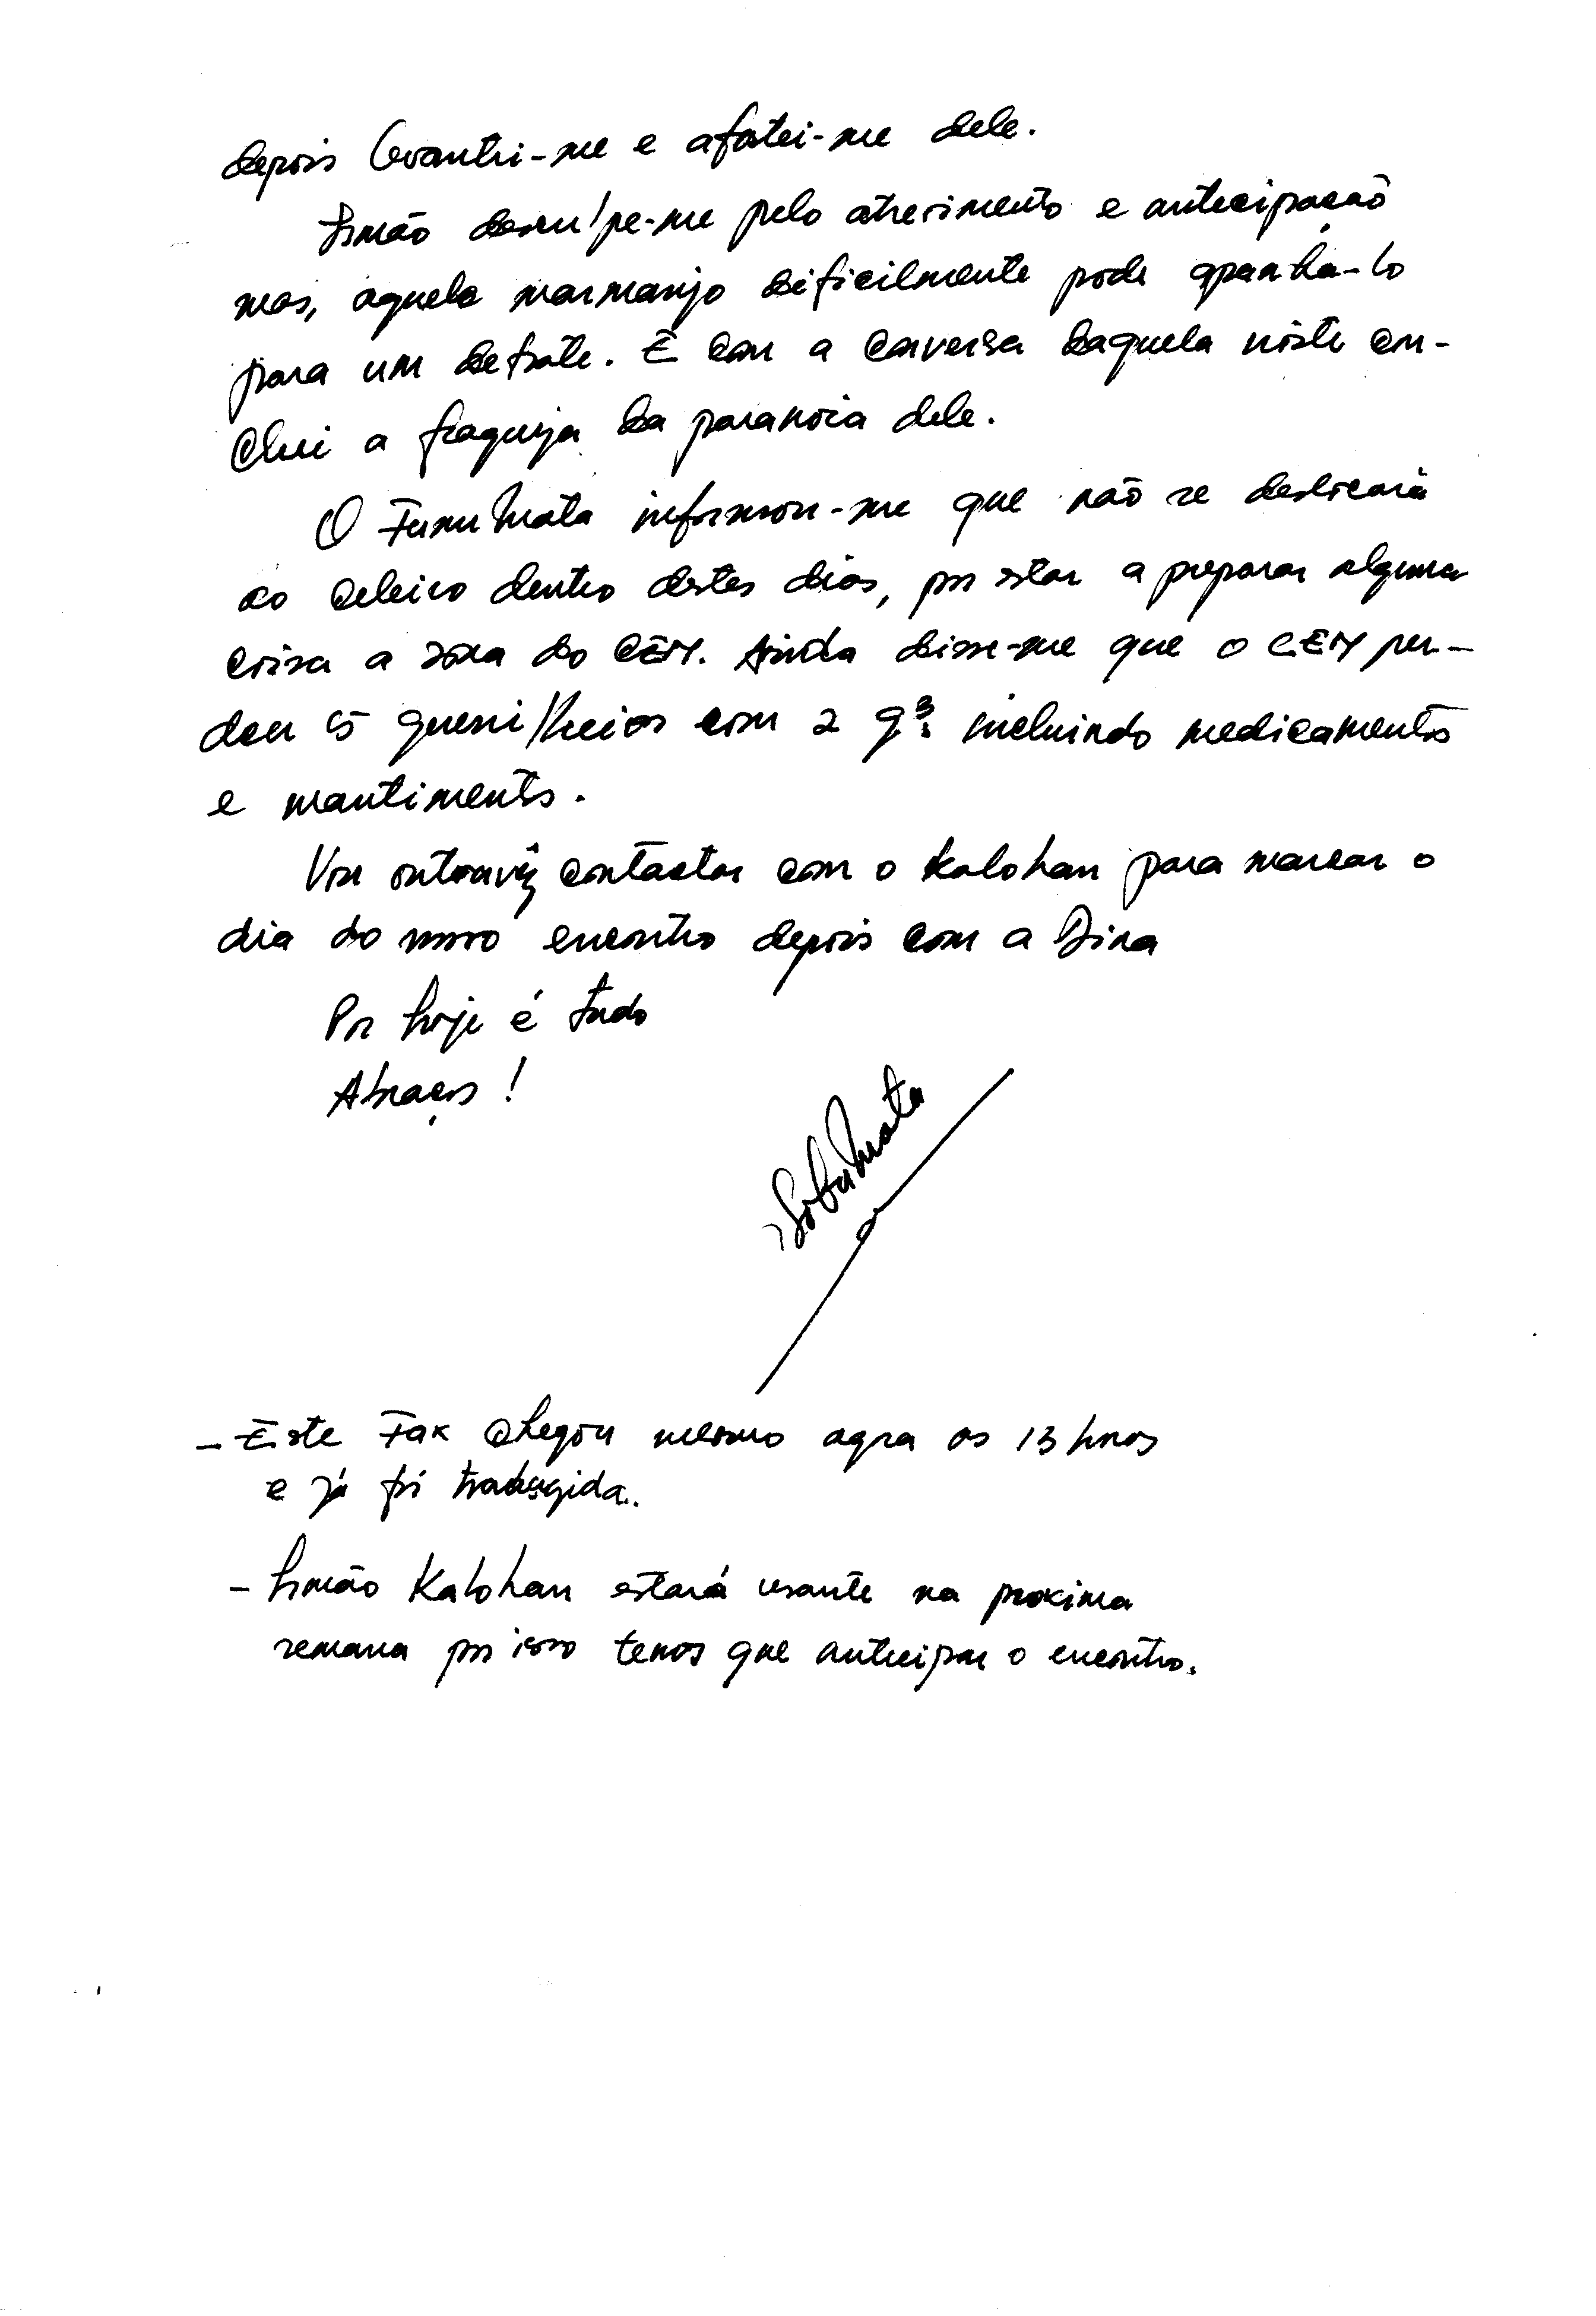 depois levantei-me e afastei-me dele.
Irmão desculpe-me pelo atrevimento e antecipação
mas, aquele marmanjo dificilmente pode apanha-lo
para um debate. E com a conversa daquela noite con-
clui a fraqueza da paranoia dele.
O Fumuhata informou-me que não se deslocará
ao celeiro dentro destes dias, por estar a preparar alguma
coisa a zona do CEM. Ainda disse-me que o CEM per-
deu 5 guerrilheiros com 2 incluindo medicamentos
e mantimentos.
Vou outravêz contactar com o Kalohan para marcar o
dia do novo encontro depois com a Dina
Por hoje é tudo
Abraços!
- Este Fax chegou mesmo agora as 13 horas
e já foi traduzida.
- Irmão Kalohan estará usante na proxima
semana por isso temos que antecipar o encontro.